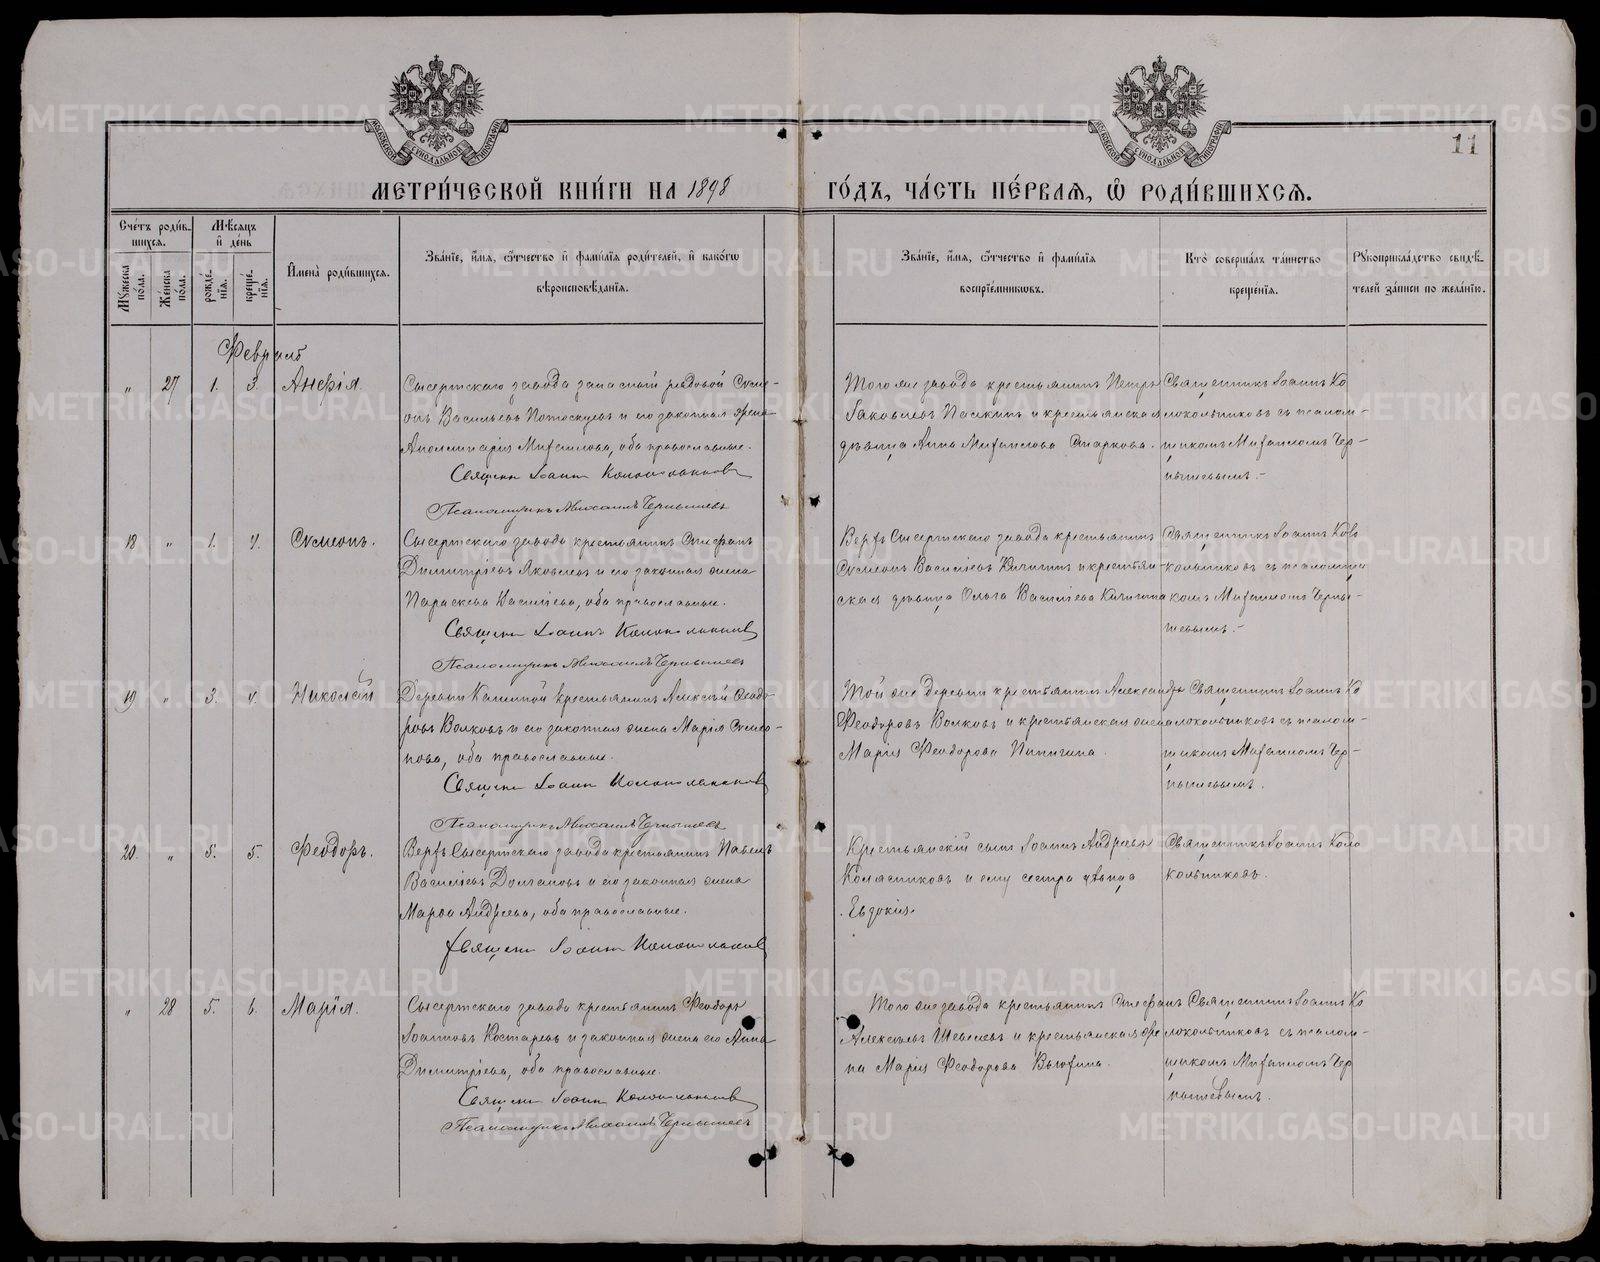 11
МЕТРИ́ЧЕСКОЙ КНИ́ГИ НА 1898 ГО́ДЪ, ЧА́СТЬ ПЕ́РВАЯ, Ѡ РОДИ́ВШИХСЯ.
Сче́тъ роди́в-
шихся.
Му́жеска по́ла.
Же́нска по́ла.
Мѣ́сяцъ
и҆ де́нь
рожде́нїя.
креще́нїя.
И҆мена̀ роди́вшихся.
Зва́нїе, и҆́мя, ѻ҆́тчество и҆ фами́лїя роди́телей, и҆ како́гѡ
вѣроисповѣ́данїя.
Зва́нїе, и҆́мя, ѻ҆́тчество и҆ фами́лїя
воспрїе́мникѡвъ.
Кто̀ соверша́лъ та́инство
креще́нїя.
Рꙋкоприкла́дство свидѣ́-
телей за́писи по жела́нїю.
Февраль
" 27 1. 3. Анфія.
Сысертскаго завода запасный рядовой Симе-
онъ Васильевъ Потоскуевъ и его законная жена
Аполлинарія Михаилова, оба православные.
Священ Іоаннъ Колокольниковъ
Псаломщикъ Михаилъ Чернышевъ
Того же завода крестьянинъ Петръ
Іаковлевъ и крестьянская
дѣвица Анна Михаилова Старкова.
Священникъ Іоаннъ Ко
локольниковъ съ псалом-
щикомъ Михаиломъ Чер-
нышевымъ.-
18 " 1. 4. Сѵмеонъ.
Сысертскаго завода крестьянинъ Стефанъ
Димитріевъ Яковлевъ и его законная жена
Параскева Василіева, оба православные.
Священ Іоаннъ Колокольниковъ
Псаломщикъ Михаилъ Чернышевъ
Верхъ Сысертскаго завода крестьянинъ
Сѵмеонъ Василіевъ Кичигинъ и крестьян-
ская дѣвица Ольга Василіева Кичигина
Священникъ Іоаннъ Коло
кольниковъ съ псаломщи
комъ Михаиломъ Черны-
шевымъ.-
19 " 3. 4. Николай
Деревни крестьянинъ Алексѣй Ѳеодо-
ровъ Волковъ и его законная жена Марія Сѵмео-
нова, оба православные.
Священ Іоаннъ Колокольниковъ
Псаломщикъ Михаилъ Чернышевъ
Той же деревни крестьянинъ Александръ
Феодоровъ Волковъ и крестьянская жена
Марія Феодорова
Священникъ Іоаннъ Ко
локольниковъ съ псалом-
щикомъ Михаиломъ Чер-
нышевымъ.
20. " 5. 5. Феодоръ.
Верхъ Сысертскаго завода крестьянинъ Павелъ
Василіевъ Долгановъ и его законная жена
Марѳа Андреева, оба православные.
Священ Іоаннъ Колокольниковъ
Крестьянскій сынъ Іоаннъ Андреевъ
Колясниковъ и ему сестра дѣвица
Евдокія.
Священникъ Іоаннъ Коло
кольниковъ.
" 28 5. 6. Марія.
Сысертскаго завода крестьянинъ Феодоръ
Іоанновъ Костаревъ и законная жена его Анна
Димитріева, оба православные.
Священ Іоаннъ Колокольниковъ
Псаломщикъ Михаилъ Чернышевъ
Того же завода крестьянинъ Стефанъ
Алексѣевъ и крестьянская же
на Марія Феодорова Вьюхина.
Священникъ Іоаннъ Ко
локольниковъ съ псалом-
щикомъ Михаиломъ Чер
нышевымъ.
METRIKI.GASO-URAL.RU